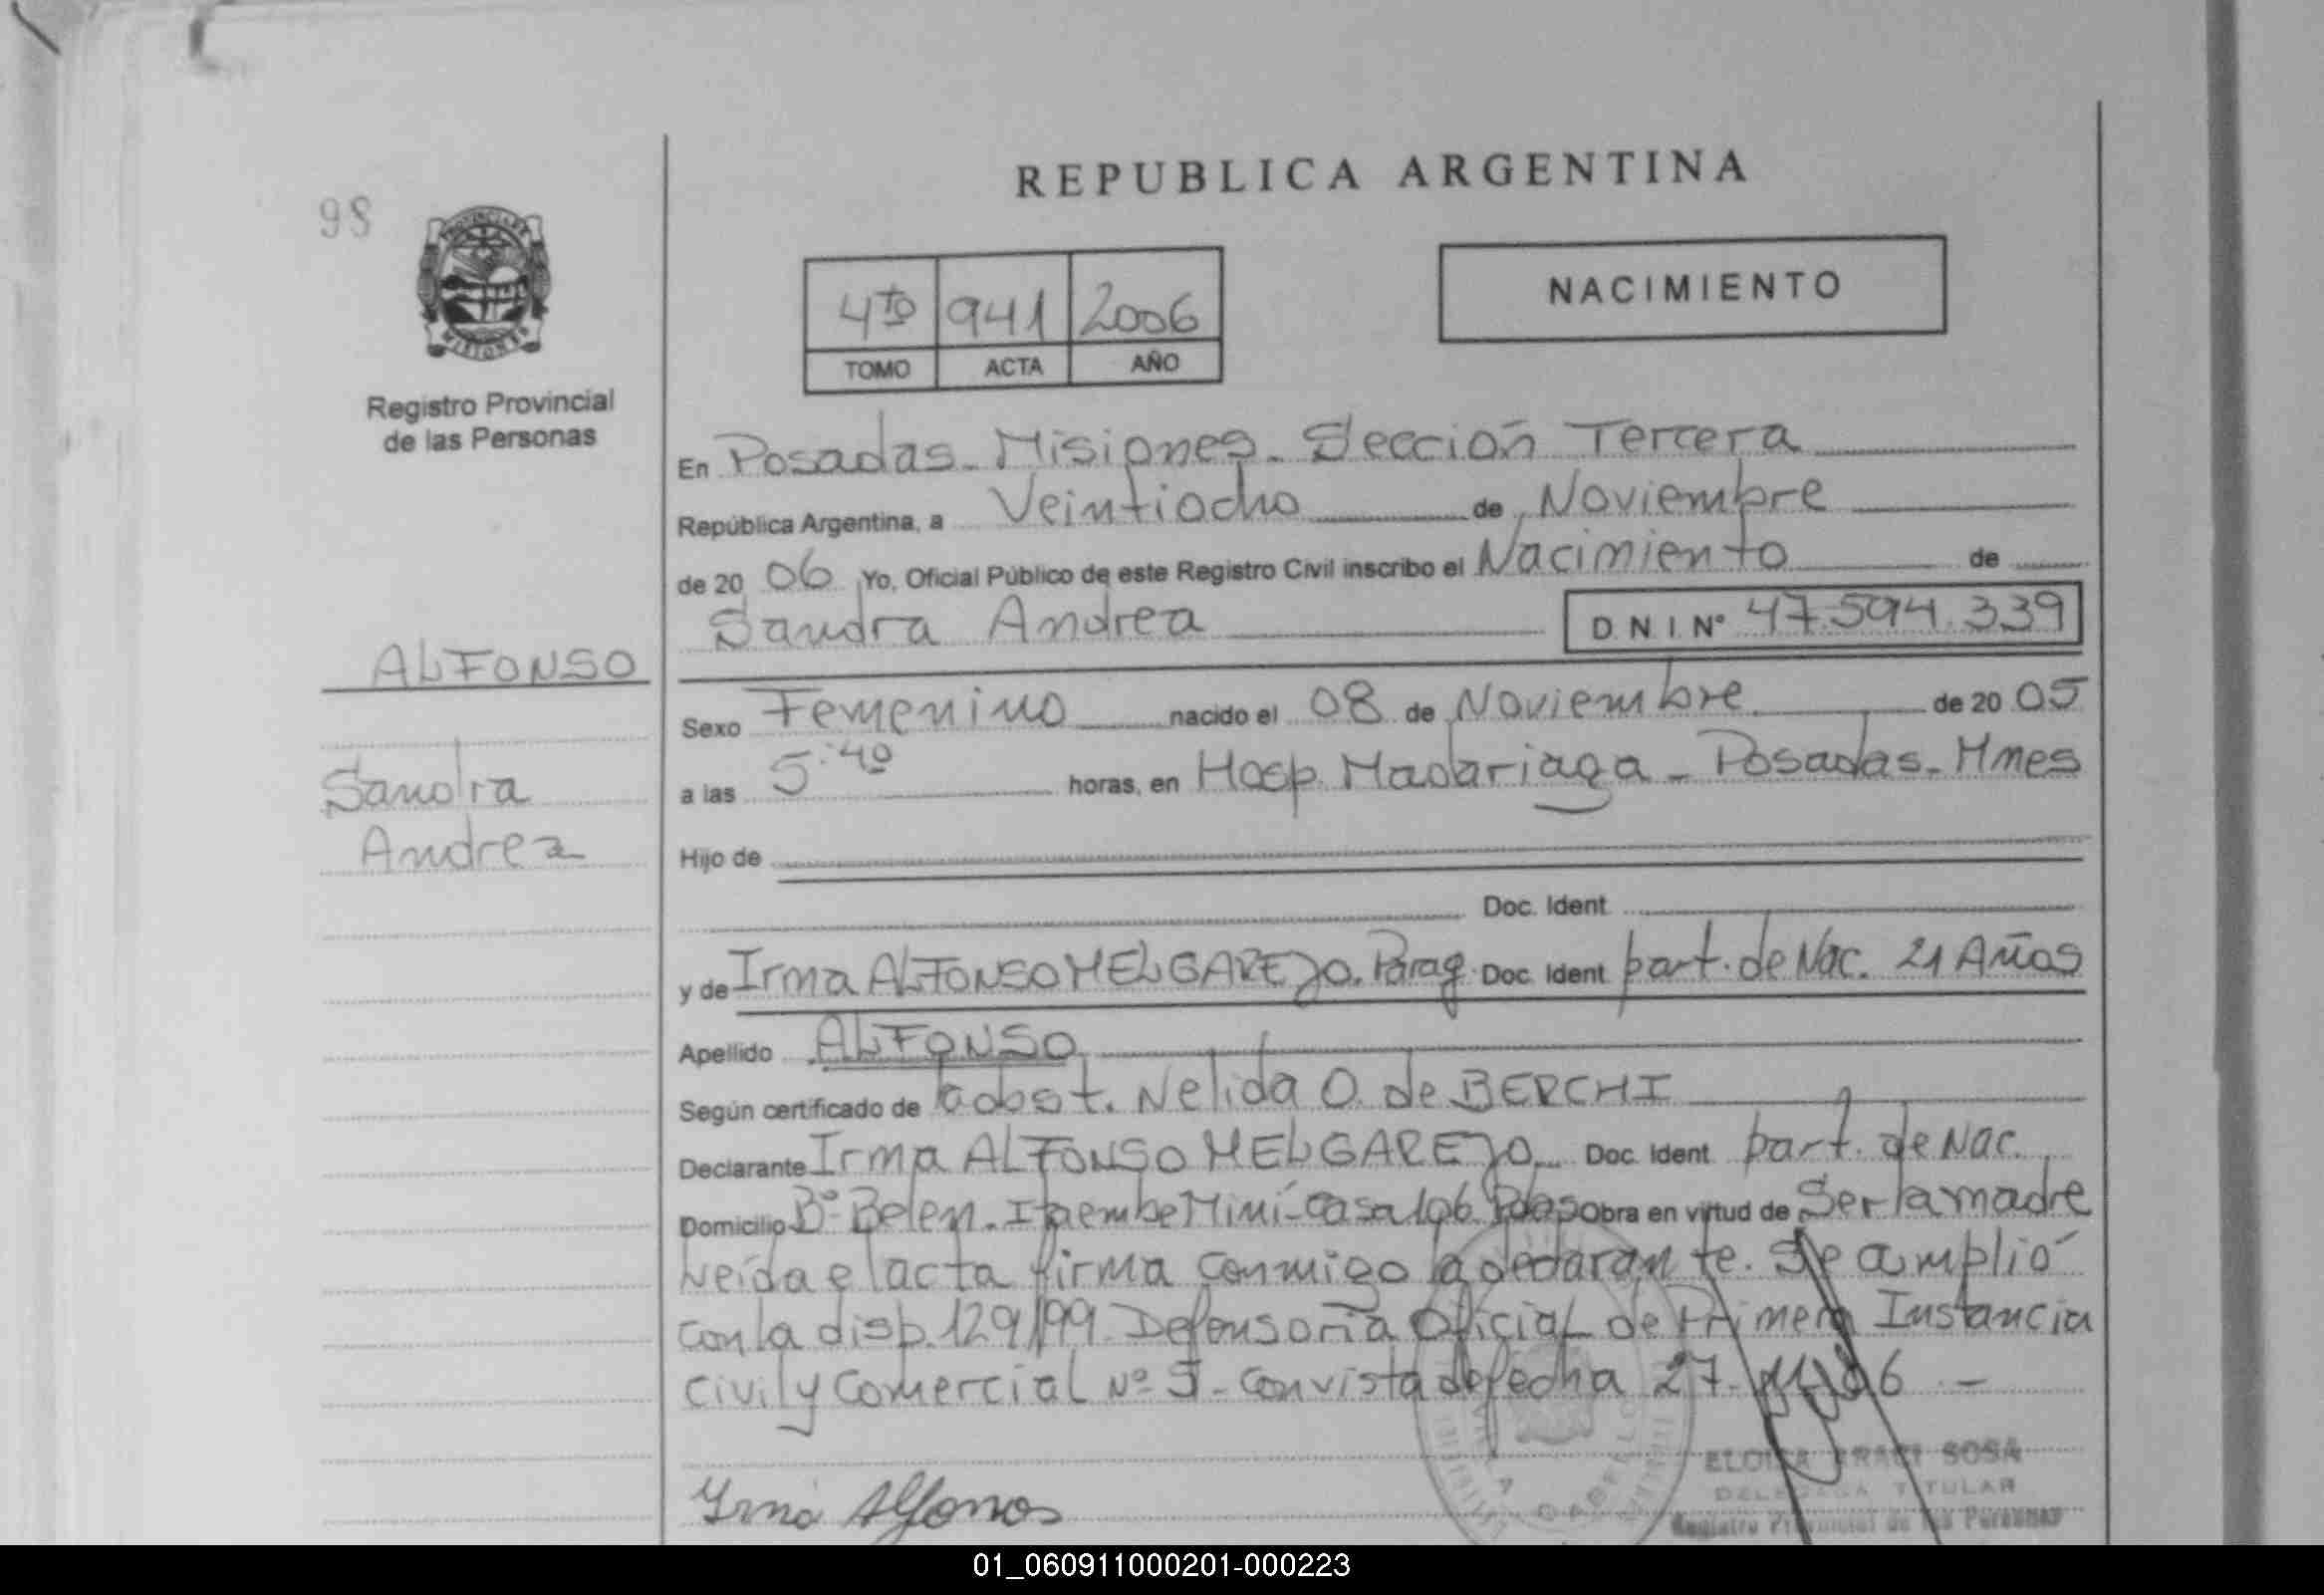 REPUBLICA ARGENTINA
98
NACIMIENTO
4to 941 2006
TOMO ACTA AÑO
Registro Provincial
de las Personas
En Posadas - Misiones - Sección Tercera
República Argentina, a Veintiocho de Noviembre
de 20 06 Yo, Oficial Público de este Registro Civil inscribo el Nacimiento de
Sandra Andrea D.N.I. Nº 47.594.339
ALFONSO
Sandra
Andrea
Sexo Femenino nacido el 08 de Noviembre de 20 05
a las 5:40 horas, en Hosp. Madariaga - Posadas - Mnes
Hijo de
Doc. Ident
y de Irma ALFONSO MELGAREJO. Parag. Doc. Ident part. de Nac. 21 Años
Apellido ALFONSO
Según certificado de obst. Nelida O. de BERCHI
Declarante Irma ALFONSO MELGAREJO Doc. Ident part. de Nac.
Domicilio Bº Belen - Itaembe Miní - Casa 106 Pdas Obra en virtud de Ser la madre
Leída el acta firma conmigo la declarante. Se amplió
con la disp. 129/99 Defensoría Oficial de Primera Instancia
Civil y Comercial Nº 5 - con vista de fecha 27 06 -
Irma Alfonso
SOSA
TITULAR
Registro Provincial de las Personas
01_060911000201-000223